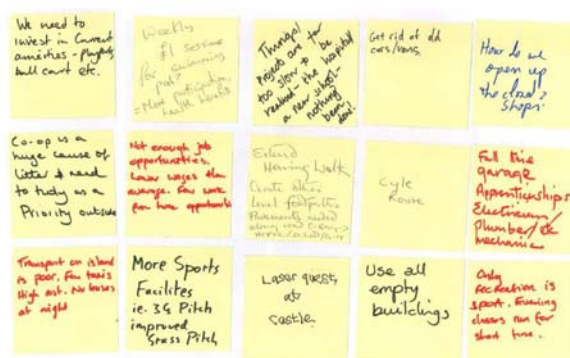 We need to
invest in current
amenities - playpark
ball court etc.
Weekly
£1 sessions
for swimming
pool?
= More participation,
health benefits
Things/
project are far
too slow to be
realised - the hospital
a new school -
nothing
been
done!
Get rid of old
cars/vans.
How do we
open up
the closed
shops?
Co-op is a
huge cause of
litter & need
to tidy as a
Priority outside
Not enough job
opportunities.
Lower wages than
average. Few work
for hire
Extend
Herring Walk
Create other
level footpaths
Pavements needed
along road
Cycle
Route
Full time
garage
Apprenticeships
Electrician/
Plumber/etc
mechanic
Transport on island
is poor. Few taxis
High cost. No buses
at night
More Sports
Facilites
ie. 3G Pitch
improved
Grass Pitch
Laser quest
at
castle.
Use all
empty
buildings
Only
Recreation is
sport. Evening
classes run for
short time.